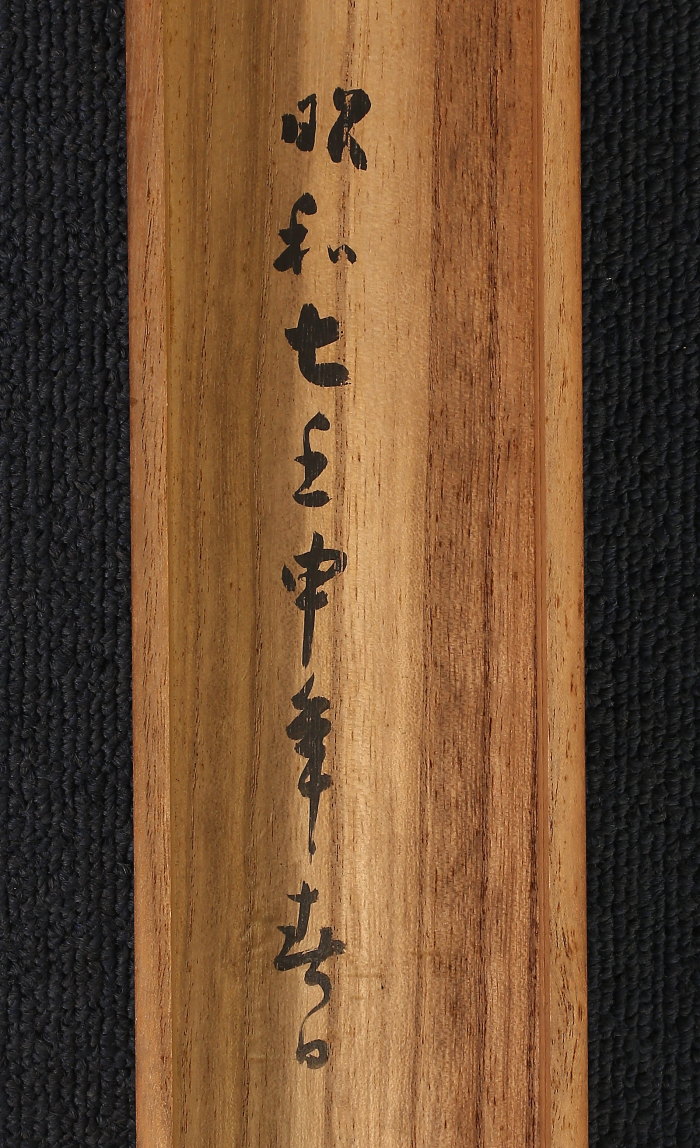 昭和七壬申年春日